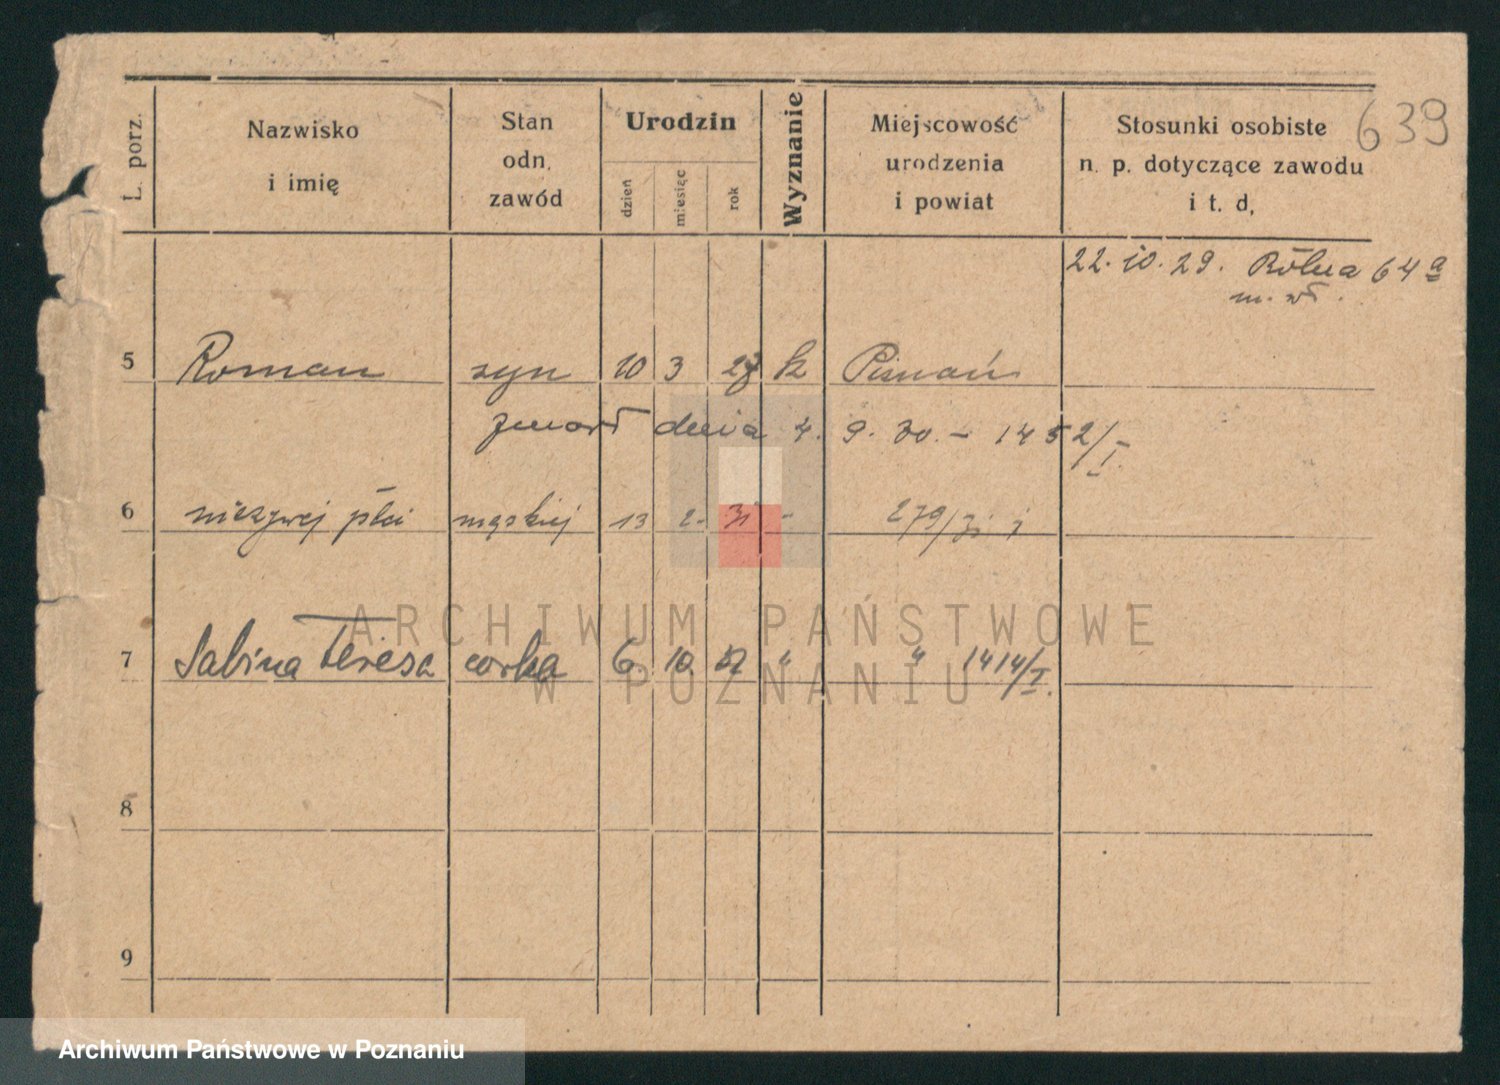 639
L. porz.
Nazwisko
i imię
Stan
odn.
zawód
Urodzin
dzień
miesiąc
rok
Wyznanie
Miejscowość
urodzenia
i powiat
Stosunki osobiste
n. p. dotyczące zawodu
i t. d,
22. 10. 29. Rólna 64a
m. wł.
5 Roman syn 10 3 k Poznań
zmarł dnia 4. 9. 30. – 1452/I.
6 nieżywej płci męskiej 13 2. 31 - 279/31 I
7 Sabina Teresa corka 6. 10. " " 1414/I.
8
9
ARCHIWUM PAŃSTWOWE
W POZNANIU
Archiwum Państwowe w Poznaniu